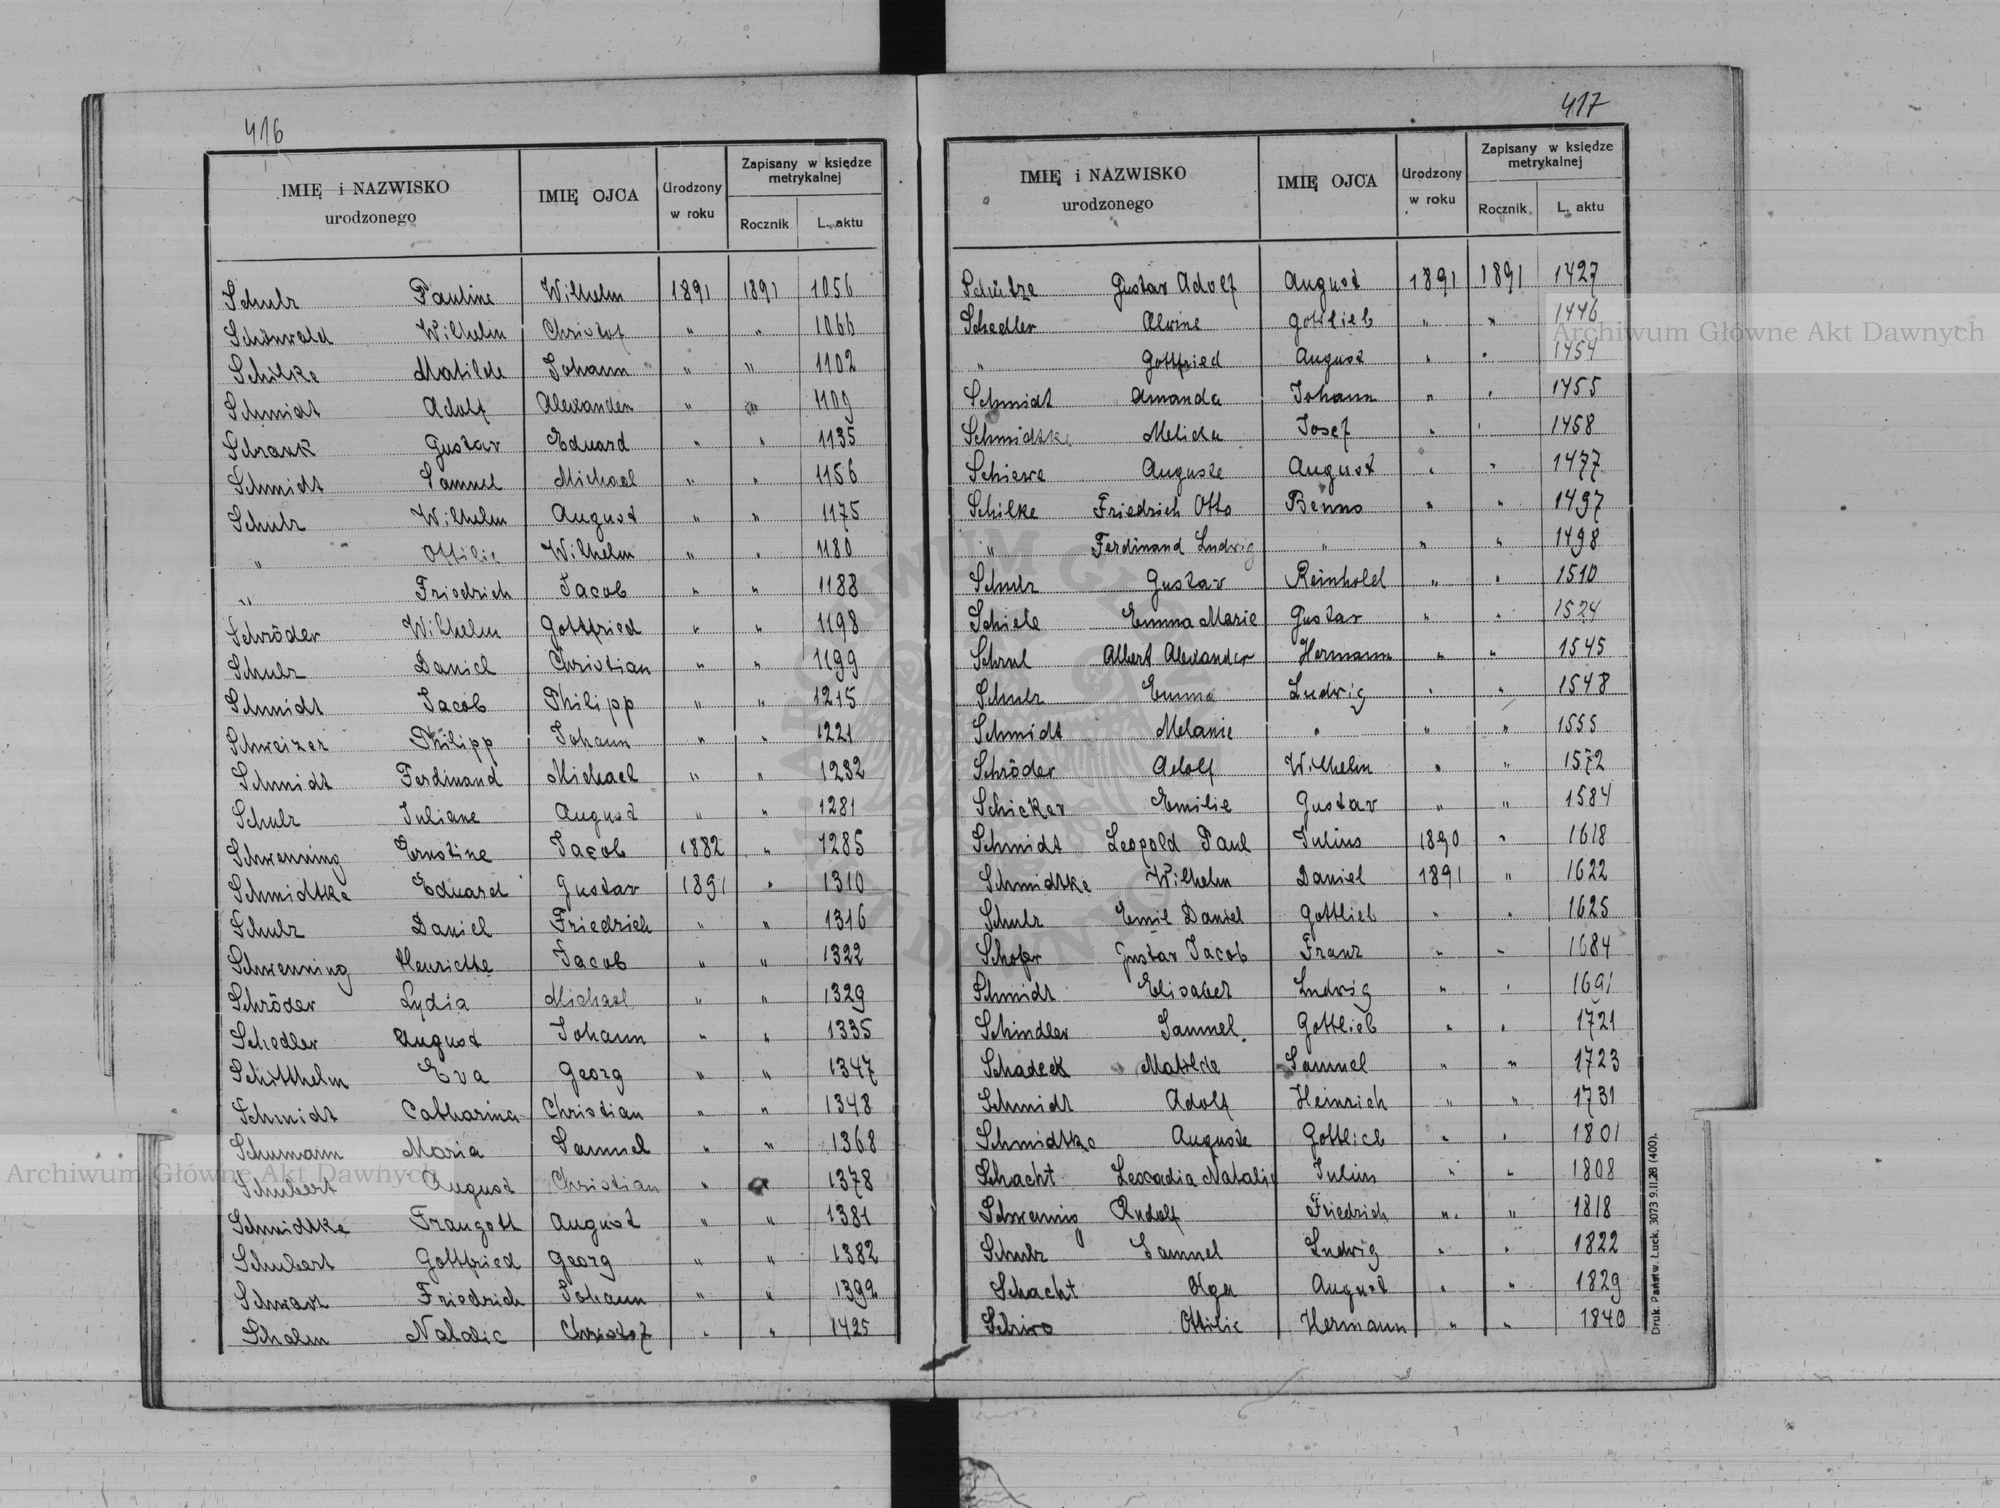 416
IMIĘ i NAZWISKO urodzonego | IMIĘ OJCA | Urodzony w roku | Zapisany w księdze metrykalnej
Rocznik | L. aktu
Schulz Pauline Wilhelm 1891 1891 1056
Schönwald Wilhelm Christof " " 1066
Schilke Matilde Johann " " 1102
Schmidt Adolf Alexander " " 1109
Schrank Gustav Eduard " " 1135
Schmidt Samuel Michael " " 1156
Schulz Wilhelm August " " 1175
" Ottilie Wilhelm " " 1180
" Friedrich Jacob " " 1188
Schröder Wilhelm Gottfried " " 1198
Schulz Daniel Christian " " 1199
Schmidt Jacob Philipp " " 1215
Schweizer Philipp Johann " " 1221
Schmidt Ferdinand Michael " " 1232
Schulz Juliane August " " 1281
Schwenning Ernstine Jacob 1882 " 1285
Schmidtke Eduard Gustav 1891 " 1310
Schulz Daniel Friedrich " " 1316
Schwenning Henriette Jacob " " 1322
Schröder Lydia Michael " " 1329
Schedler August Johann " " 1335
Schitthelm Eva Georg " " 1347
Schmidt Catharina Christian " " 1348
Schumann Maria Samuel " " 1368
Schubert August Christian " " 1378
Schmidtke Traugott August " " 1381
Schubert Gottfried Georg " " 1382
Schwarz Friedrich Johann " " 1392
Schalm Natalie Christof " " 1425
417
IMIĘ i NAZWISKO urodzonego | IMIĘ OJCA | Urodzony w roku | Zapisany w księdze metrykalnej
Rocznik | L. aktu
Schütze Gustav Adolf August 1891 1891 1427
Schedler Alvine Gottlieb " " 1446
" Gottfried August " " 1454
Schmidt Amanda Johann " " 1455
Schmidtke Josef " " 1458
Schiewe Auguste August " " 1477
Schilke Friedrich Otto Benno " " 1497
" Ferdinand Ludwig " " " 1498
Schulz Gustav Reinhold " " 1510
Schiele Emma Marie Gustav " " 1524
Albert Alexander Hermann " " 1545
Schulz Emma Ludwig " " 1548
Schmidt Melanie " " " 1555
Schröder Adolf Wilhelm " " 1572
Schicker Emilie Gustav " " 1584
Schmidt Leopold Paul Julius 1890 " 1618
Schmidtke Wilhelm Daniel 1891 " 1622
Schulz Emil Daniel Gottlieb " " 1625
Schofer Gustav Jacob Franz " " 1684
Schmidt Elisabet Ludwig " " 1691
Schindler Samuel Gottlieb " " 1721
Schadeck Matilde Samuel " " 1723
Schmidt Adolf Heinrich " " 1731
Schmidtke Auguste Gottlieb " " 1801
Schacht Leocadia Natalie Julius " " 1808
Schwennig Rudolf Friedrich " " 1818
Schulz Samuel Ludwig " " 1822
Schacht Olga August " " 1829
Schiro Ottilie Hermann " " 1840
Druk. Państw. Łuck. 3073 9.II.28 (400).
Archiwum Główne Akt Dawnych
Archiwum Główne Akt Dawnych
ARCHIWUM GŁÓWNE AKT DAWNYCH